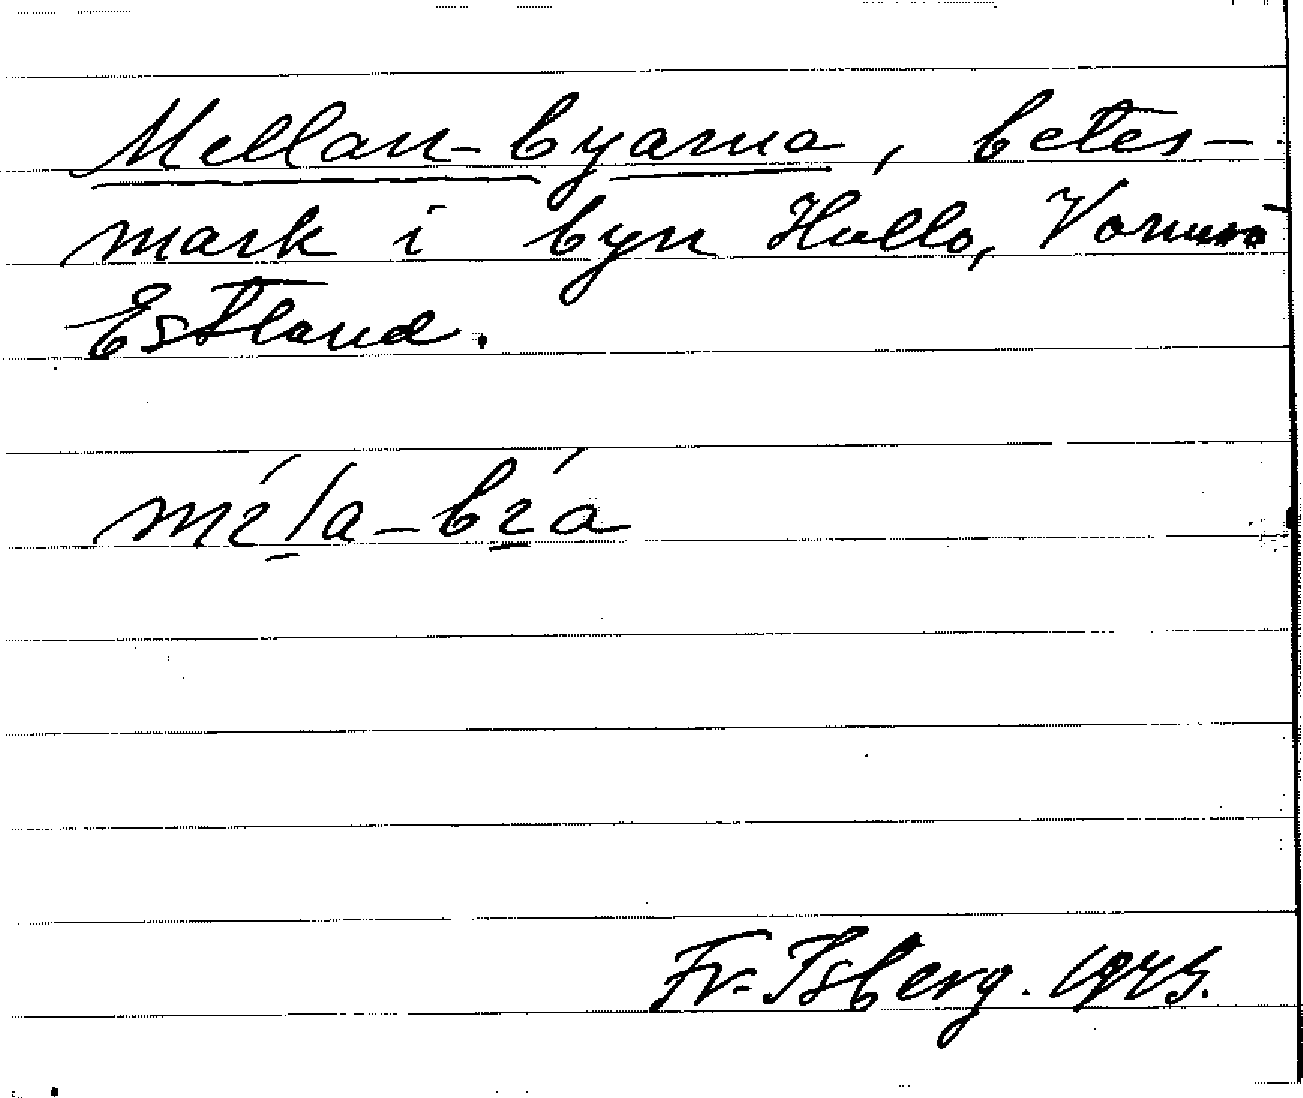 Mellan-byarna, betes-
mark i byn Hullo, Vormsö
Estland.
Fr. Isberg.